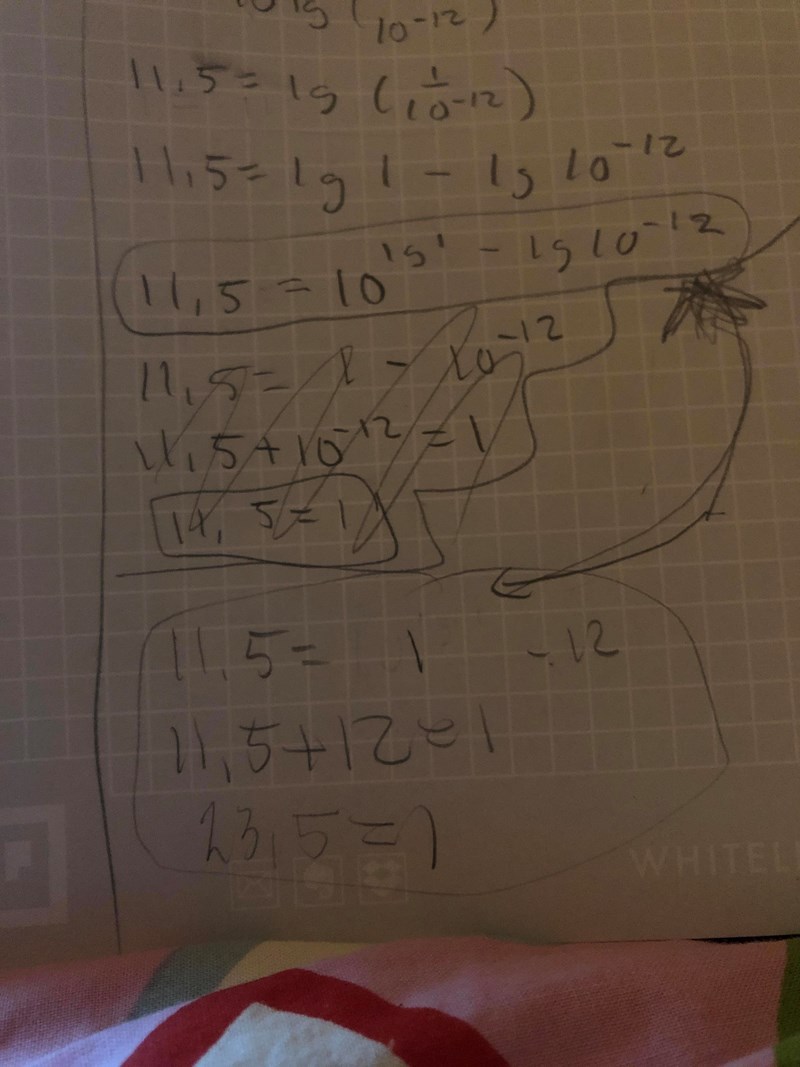 10 lg (10⁻¹²)
11,5 = lg (1/10⁻¹²)
11,5 = lg 1 - lg 10⁻¹²
11,5 = 10^(lg 1 - lg 10⁻¹²)
11,5 = 1 - 10⁻¹²
11,5 + 10⁻¹² = 1
11,5 = 1
11,5 = 1 - 12
11,5 + 12 = 1
23,5 = 1
WHITEL